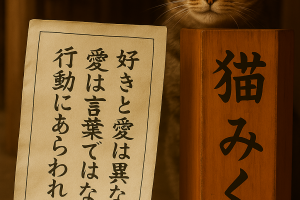 好きと愛は異な
愛は言葉ではな
行動にあらわれ
猫みく